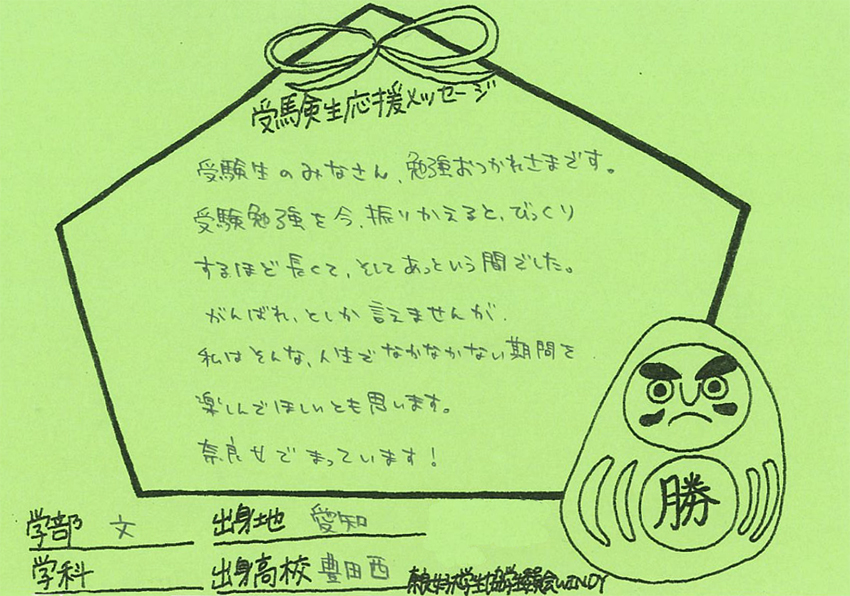 受験生応援メッセージ
受験生のみなさん、勉強おつかれさまです。
受験勉強を今、振りかえると、びっくり
するほど長くて、そしてあっという間でした。
がんばれ、としか言えませんが、
私はそんな、人生でなかなかない期間を
楽しんでほしいとも思います。
奈良女でまっています！
勝
学部 文 出身地 愛知
学科 出身高校 豊田西
奈良女子大学生協学生委員会WINDY